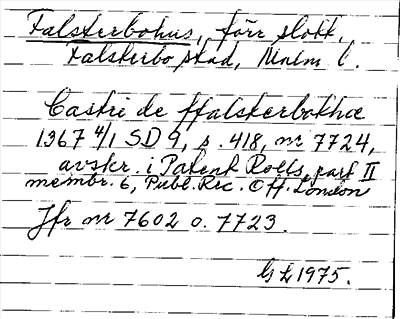 Falsterbohus, förr slott,
Falsterbo stad, Malm l.
Castri de ffalsterbothæ
1367 4/1 SD 9, s. 418, nr 7724,
avskr. i Patent Rolls, part II
membr. 6, Publ. Rec. Off. London
Jfr nr 7602 o. 7723.
GL 1975.